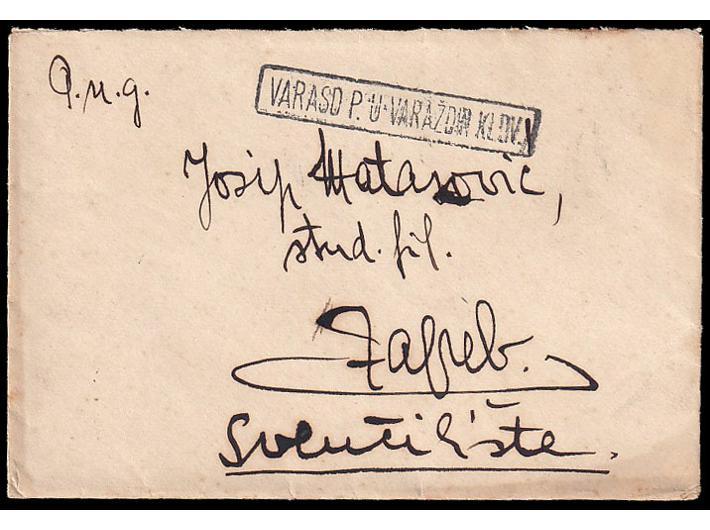 P. n. g.
VARASD P. U·VARAŽDIN KLDV.
Josip Matasović,
stud. fil.
Zagreb.
Sveučilište.